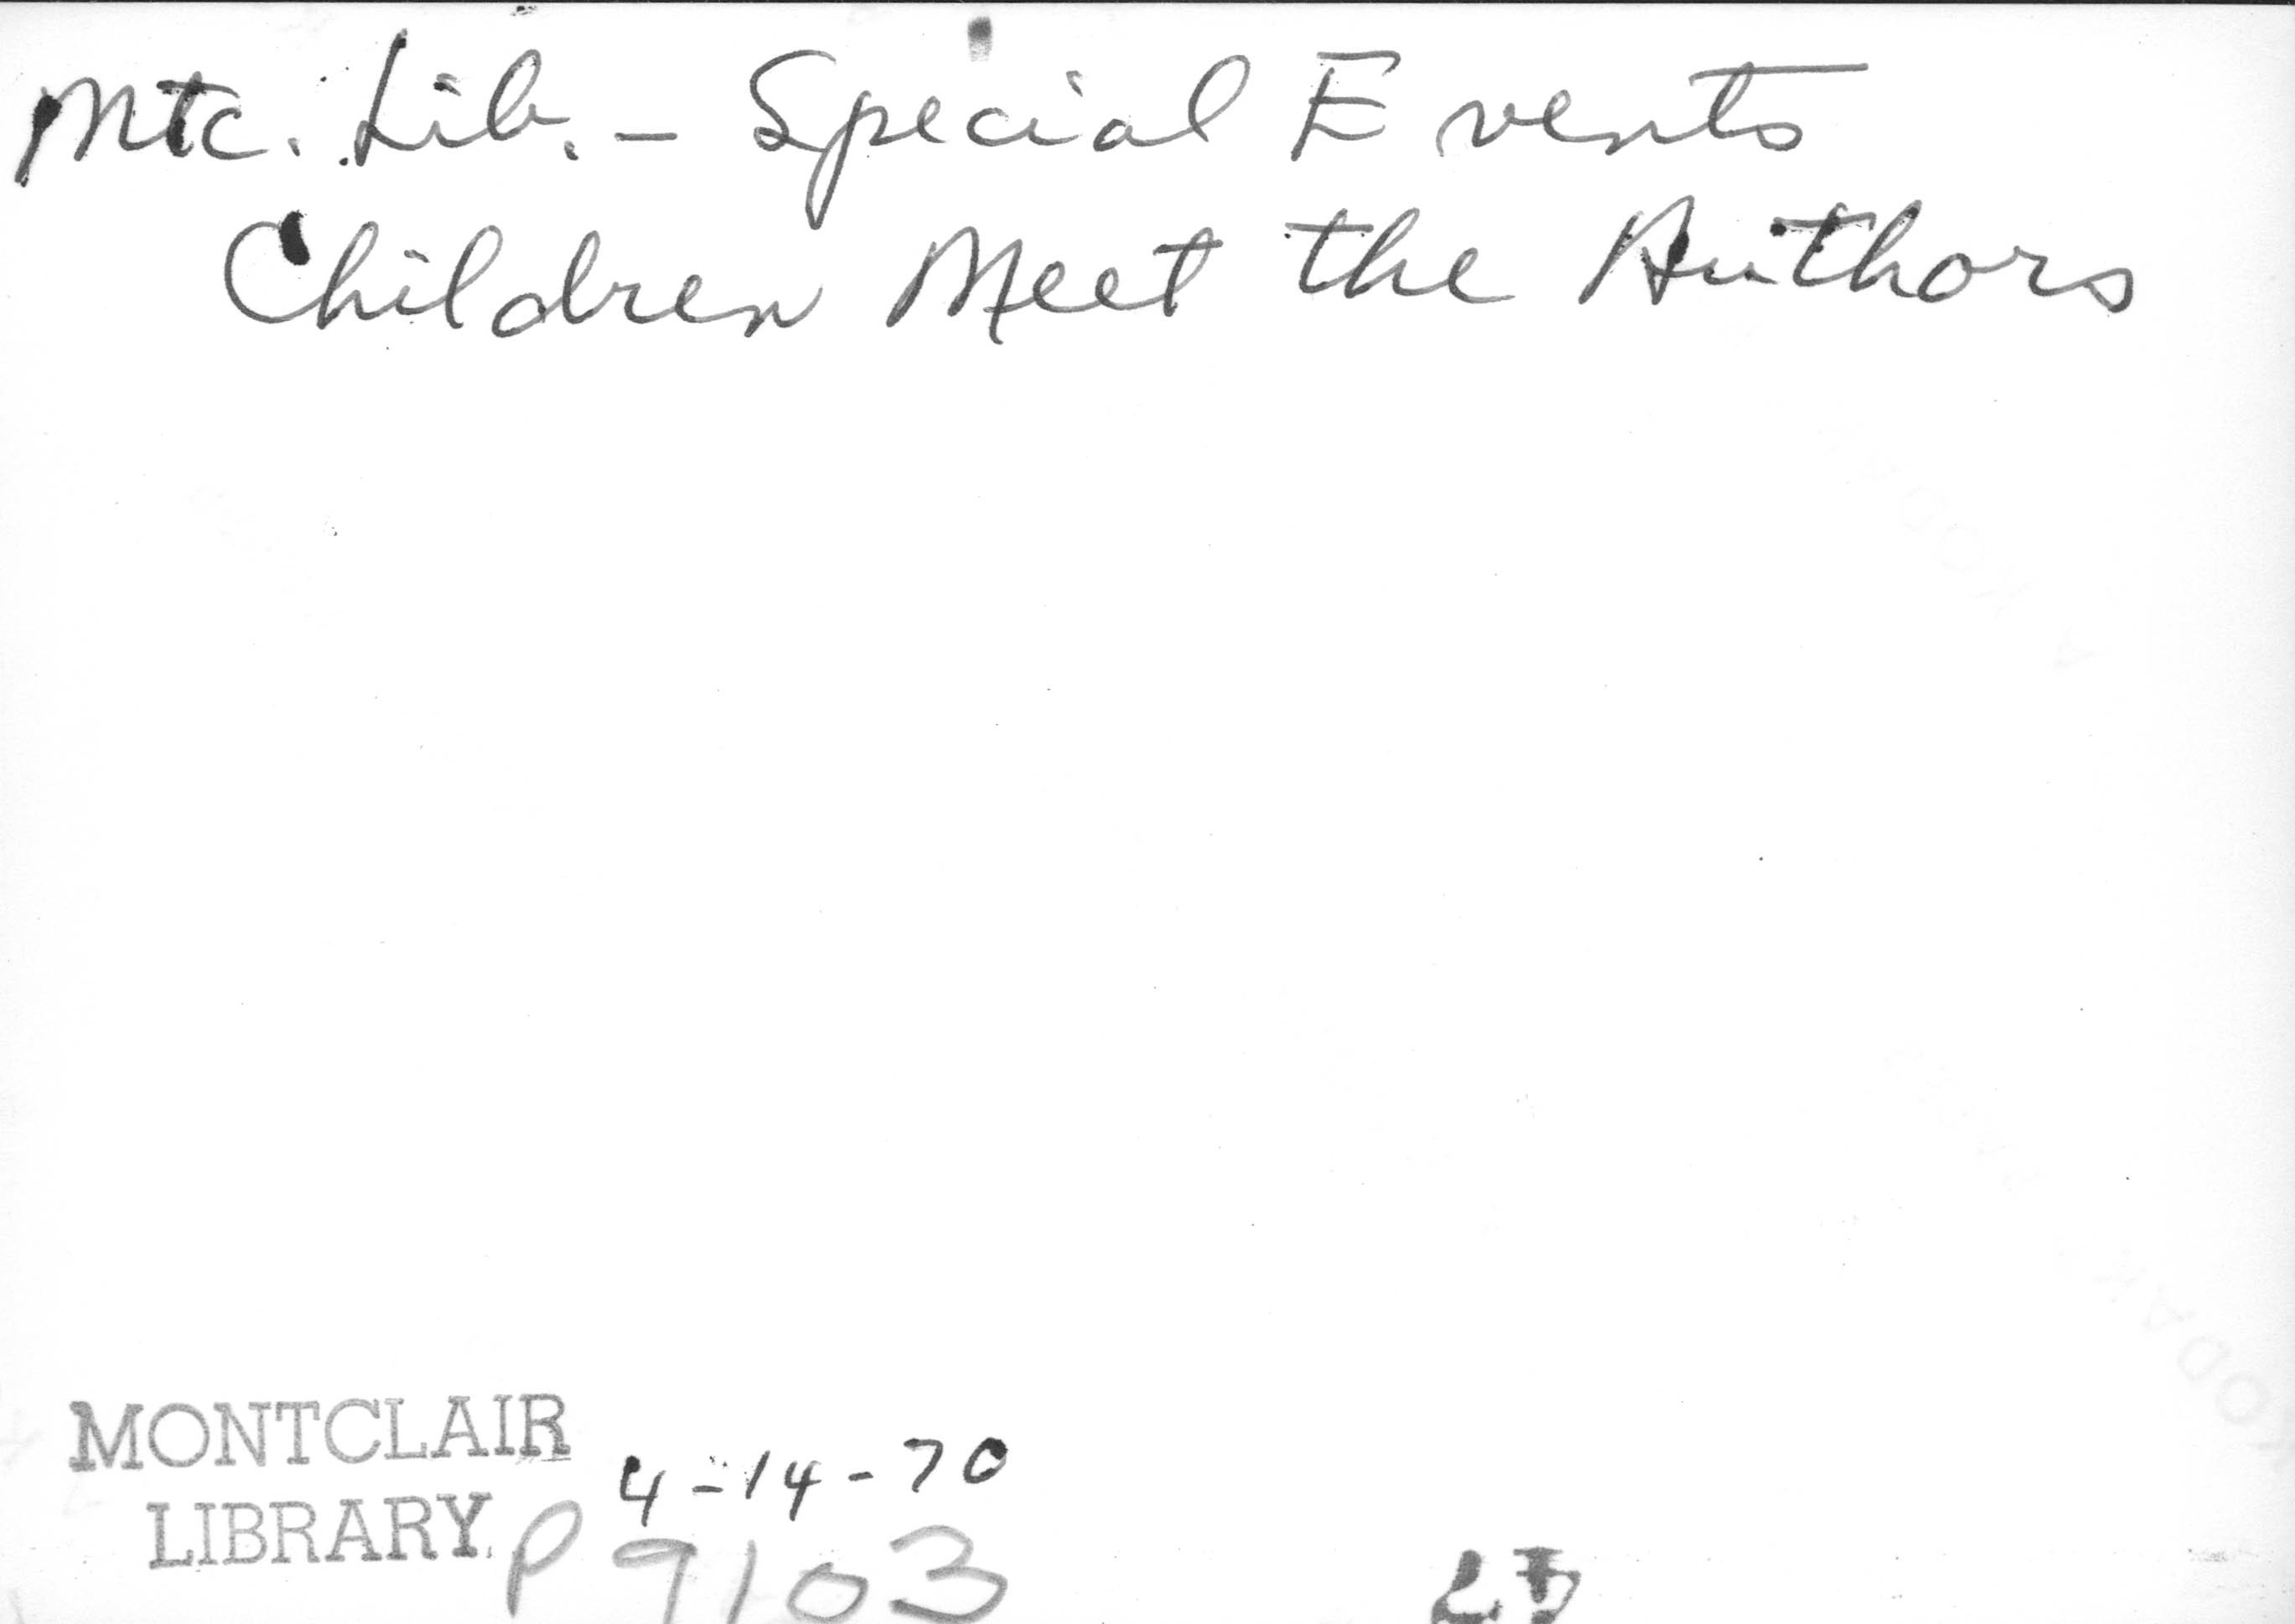 Mtc. Lib. - Special Events
Children Meet the Authors
MONTCLAIR
LIBRARY
4-14-70
P 9103